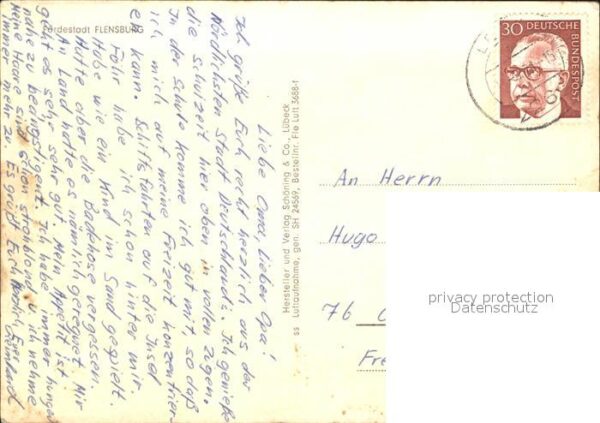 Fördestadt FLENSBURG
Liebe Oma, Lieber Opa!
Ich grüße Euch recht herzlich aus der
Nördlichsten Stadt Deutschlands. Ich genieße
die Schulzeit hier oben in vollen Zügen.
In der Schule komme ich gut mit so daß
ich mich auf meine Freizeit konzentrier-
en kann. Schiffsfahrten auf die Insel
Föhr habe ich schon hinter mir.
Habe wie ein Kind im Sand gespielt.
Hatte aber die Badehose vergessen.
An Land hatte es nämlich geregnet. Mir
geht es sehr sehr gut. Mein Appetit ist
nahe zu Ich habe immer hunger
Meine Haare sind u. ich nehme
immer mehr zu. Es grüßt Euch Euer
Hersteller und Verlag Schöning & Co., Lübeck
ss Luftaufnahme, gen. SH 24569, Bestellnr. Fle Luft 3688-1
30 DEUTSCHE
BUNDESPOST
An Herrn
Hugo
76
privacy protection
Datenschutz